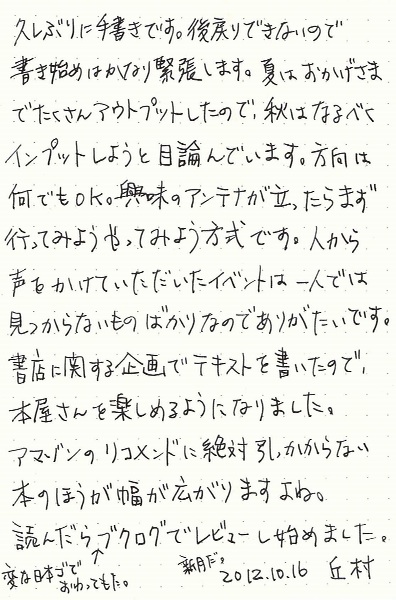 久しぶりに手書きです。後戻りできないので
書き始めはかなり緊張します。夏はおかげさま
でたくさんアウトプットしたので、秋はなるべく
インプットしようと目論んでいます。方向は
何でもOK。興味のアンテナが立ったらまず
行ってみようやってみよう方式です。人から
声をかけていただいたイベントは一人では
見つからないものばかりなのでありがたいです。
書店に関する企画でテキストを書いたので、
本屋さんを楽しめるようになりました。
アマゾンのリコメンドに絶対引っかからない
本のほうが幅が広がりますよね。
読んだらブクログでレビューし始めました。
変な日本ゴで
おわってもた。
新月だ。
2012.10.16 丘村